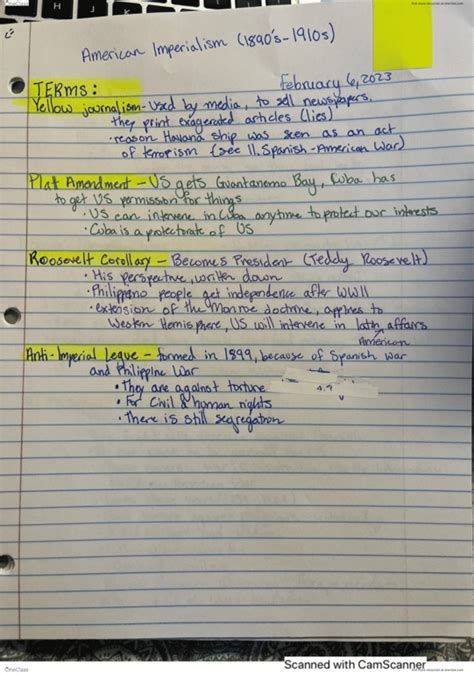 American Imperialism (1890's-1910s)
February 6, 2023
TERMS:
Yellow journalism - Used by media, to sell newspapers.
they print exagerated articles (lies)
• reason Havana ship was seen as an act
of terrorism (see II. Spanish-American War)
Plat Amendment - US gets Guantanemo Bay, Cuba has
to get US permission for things
• US can intervene in Cuba anytime to protect our interests
• Cuba is a protectorate of US
Roosevelt Corollary - Becomes President (Teddy Roosevelt)
• His perspective, written down
• Philippino people get independence after WWII
• extension of the Monroe doctrine, applies to
Western Hemisphere, US will intervene in latin affairs
American
Anti-Imperial legue - formed in 1899, because of Spanish War
and Philippine War
• They are against torture
• For Civil & human rights
• There is still segregation
Scanned with CamScanner
OneClass